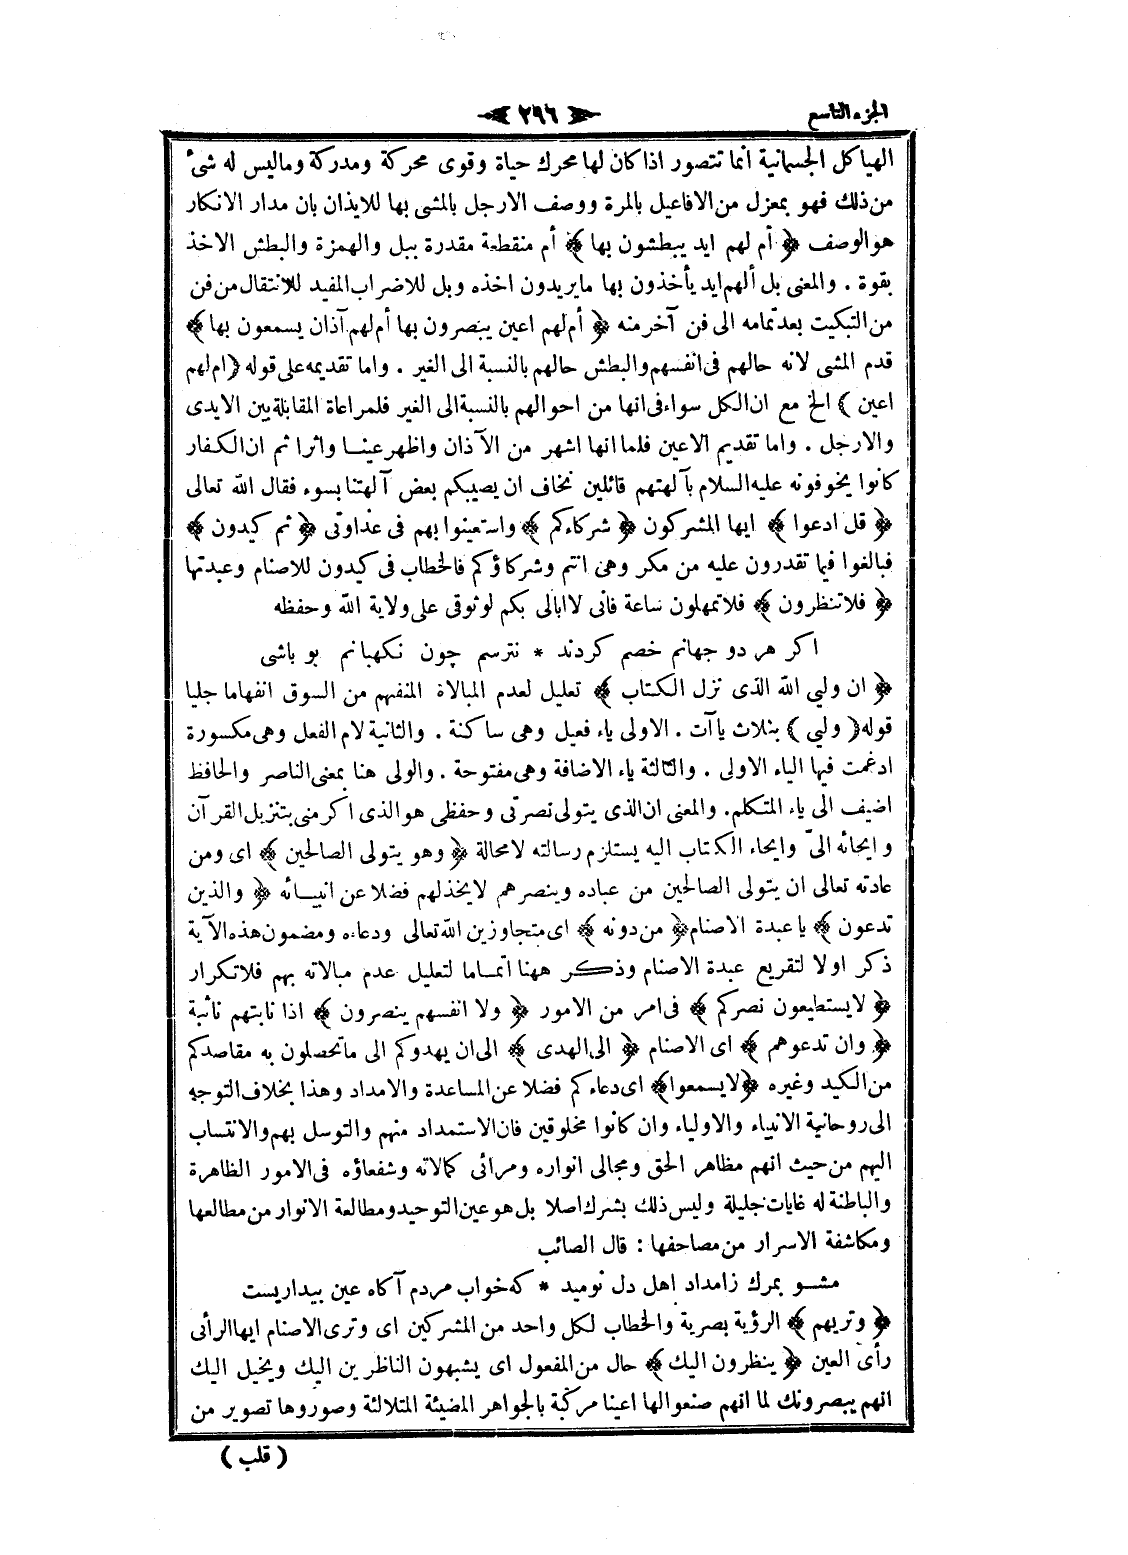 الجزء التاسع
﴿ ٢٩٦ ﴾
الهياكل الجسمانية انما تتصور اذا كان لها محرك حياة وقوى محركة ومدركة وماليس له شئ
من ذلك فهو بمعزل من الافاعيل بالمرة ووصف الارجل بالمشى بها للايذان بان مدار الانكار
هو الوصف ﴿ أم لهم ايد يبطشون بها ﴾ أم منقطعة مقدرة ببل والهمزة والبطش الاخذ
بقوة . والمعنى بل ألهم ايد يأخذون بها ما يريدون اخذه وبل للاضراب المفيد للانتقال من فن
من التبكيت بعد تمامه الى فن آخر منه ﴿ أم لهم اعين يبصرون بها أم لهم آذان يسمعون بها ﴾
قدم المشى لانه حالهم فى انفسهم والبطش حالهم بالنسبة الى الغير . واما تقديمه على قوله ( ام لهم
اعين ) الخ مع ان الكل سواء فى انها من احوالهم بالنسبة الى الغير فلمراعاة المقابلة بين الايدى
والارجل . واما تقديم الاعين فلما انها اشهر من الآذان واظهر عينا واثرا ثم ان الكفار
كانوا يخوفونه عليه السلام بآلهتهم قائلين نخاف ان يصيبكم بعض آلهتنا بسوء فقال الله تعالى
﴿ قل ادعوا ﴾ ايها المشركون ﴿ شركاءكم ﴾ واستعينوا بهم فى عداوتى ﴿ ثم كيدون ﴾
فبالغوا فيما تقدرون عليه من مكر وهى انتم وشركاؤكم فالخطاب فى كيدون للاصنام وعبدتها
﴿ فلا تنظرون ﴾ فلا تمهلون ساعة فانى لا ابالى بكم لوثوقى على ولاية الله وحفظه
اكر هر دو جهانم خصم كردند * نترسم چون نكهبانم بو باشى
﴿ ان وليي الله الذى نزل الكتاب ﴾ تعليل لعدم المبالاة المنفهم من السوق انفهاما جليا
قوله ( وليي ) بثلاث ياآت . الاولى ياء فعيل وهى ساكنة . والثانية لام الفعل وهى مكسورة
ادغمت فيها الياء الاولى . والثالثة ياء الاضافة وهى مفتوحة . والولى هنا بمعنى الناصر والحافظ
اضيف الى ياء المتكلم. والمعنى ان الذى يتولى نصرتى وحفظى هو الذى اكرمنى بتنزيل القرآن
وايحائه الىّ وايحاء الكتاب اليه يستلزم رسالته لامحالة ﴿ وهو يتولى الصالحين ﴾ اى ومن
عادته تعالى ان يتولى الصالحين من عباده وينصرهم لا يخذلهم فضلا عن انبيائه ﴿ والذين
تدعون ﴾ يا عبدة الاصنام ﴿ من دونه ﴾ اى متجاوزين الله تعالى ودعاءه ومضمون هذه الآية
ذكر اولا لتقريع عبدة الاصنام وذكر ههنا اتماما لتعليل عدم مبالاته بهم فلا تكرار
﴿ لا يستطيعون نصركم ﴾ فى امر من الامور ﴿ ولا انفسهم ينصرون ﴾ اذا نابتهم نائبة
﴿ وان تدعوهم ﴾ اى الاصنام ﴿ الى الهدى ﴾ الى ان يهدوكم الى ما تحصلون به مقاصدكم
من الكيد وغيره ﴿ لا يسمعوا ﴾ اى دعاءكم فضلا عن المساعدة والامداد وهذا بخلاف التوجه
الى روحانية الانبياء والاولياء وان كانوا مخلوقين فان الاستمداد منهم والتوسل بهم والانتساب
اليهم من حيث انهم مظاهر الحق ومجالى انواره ومرائى كمالاته وشفعاؤه فى الامور الظاهرة
والباطنة له غايات جليلة وليس ذلك بشرك اصلا بل هو عين التوحيد ومطالعة الانوار من مطالعها
ومكاشفة الاسرار من مصاحفها : قال الصائب
مشو بمرك زامداد اهل دل نوميد * كه خواب مردم آكاه عين بيداريست
﴿ وتريهم ﴾ الرؤية بصرية والخطاب لكل واحد من المشركين اى وترى الاصنام ايها الرأى
رأى العين ﴿ ينظرون اليك ﴾ حال من المفعول اى يشبهون الناظرين اليك ويخيل اليك
انهم يبصرونك لما انهم صنعوالها اعينا مركبة بالجواهر المضيئة المتلالئة وصوروها تصوير من
( قلب )